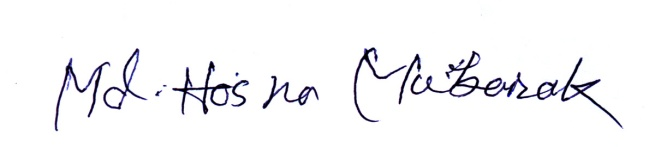 Md. Hosna Mubarak